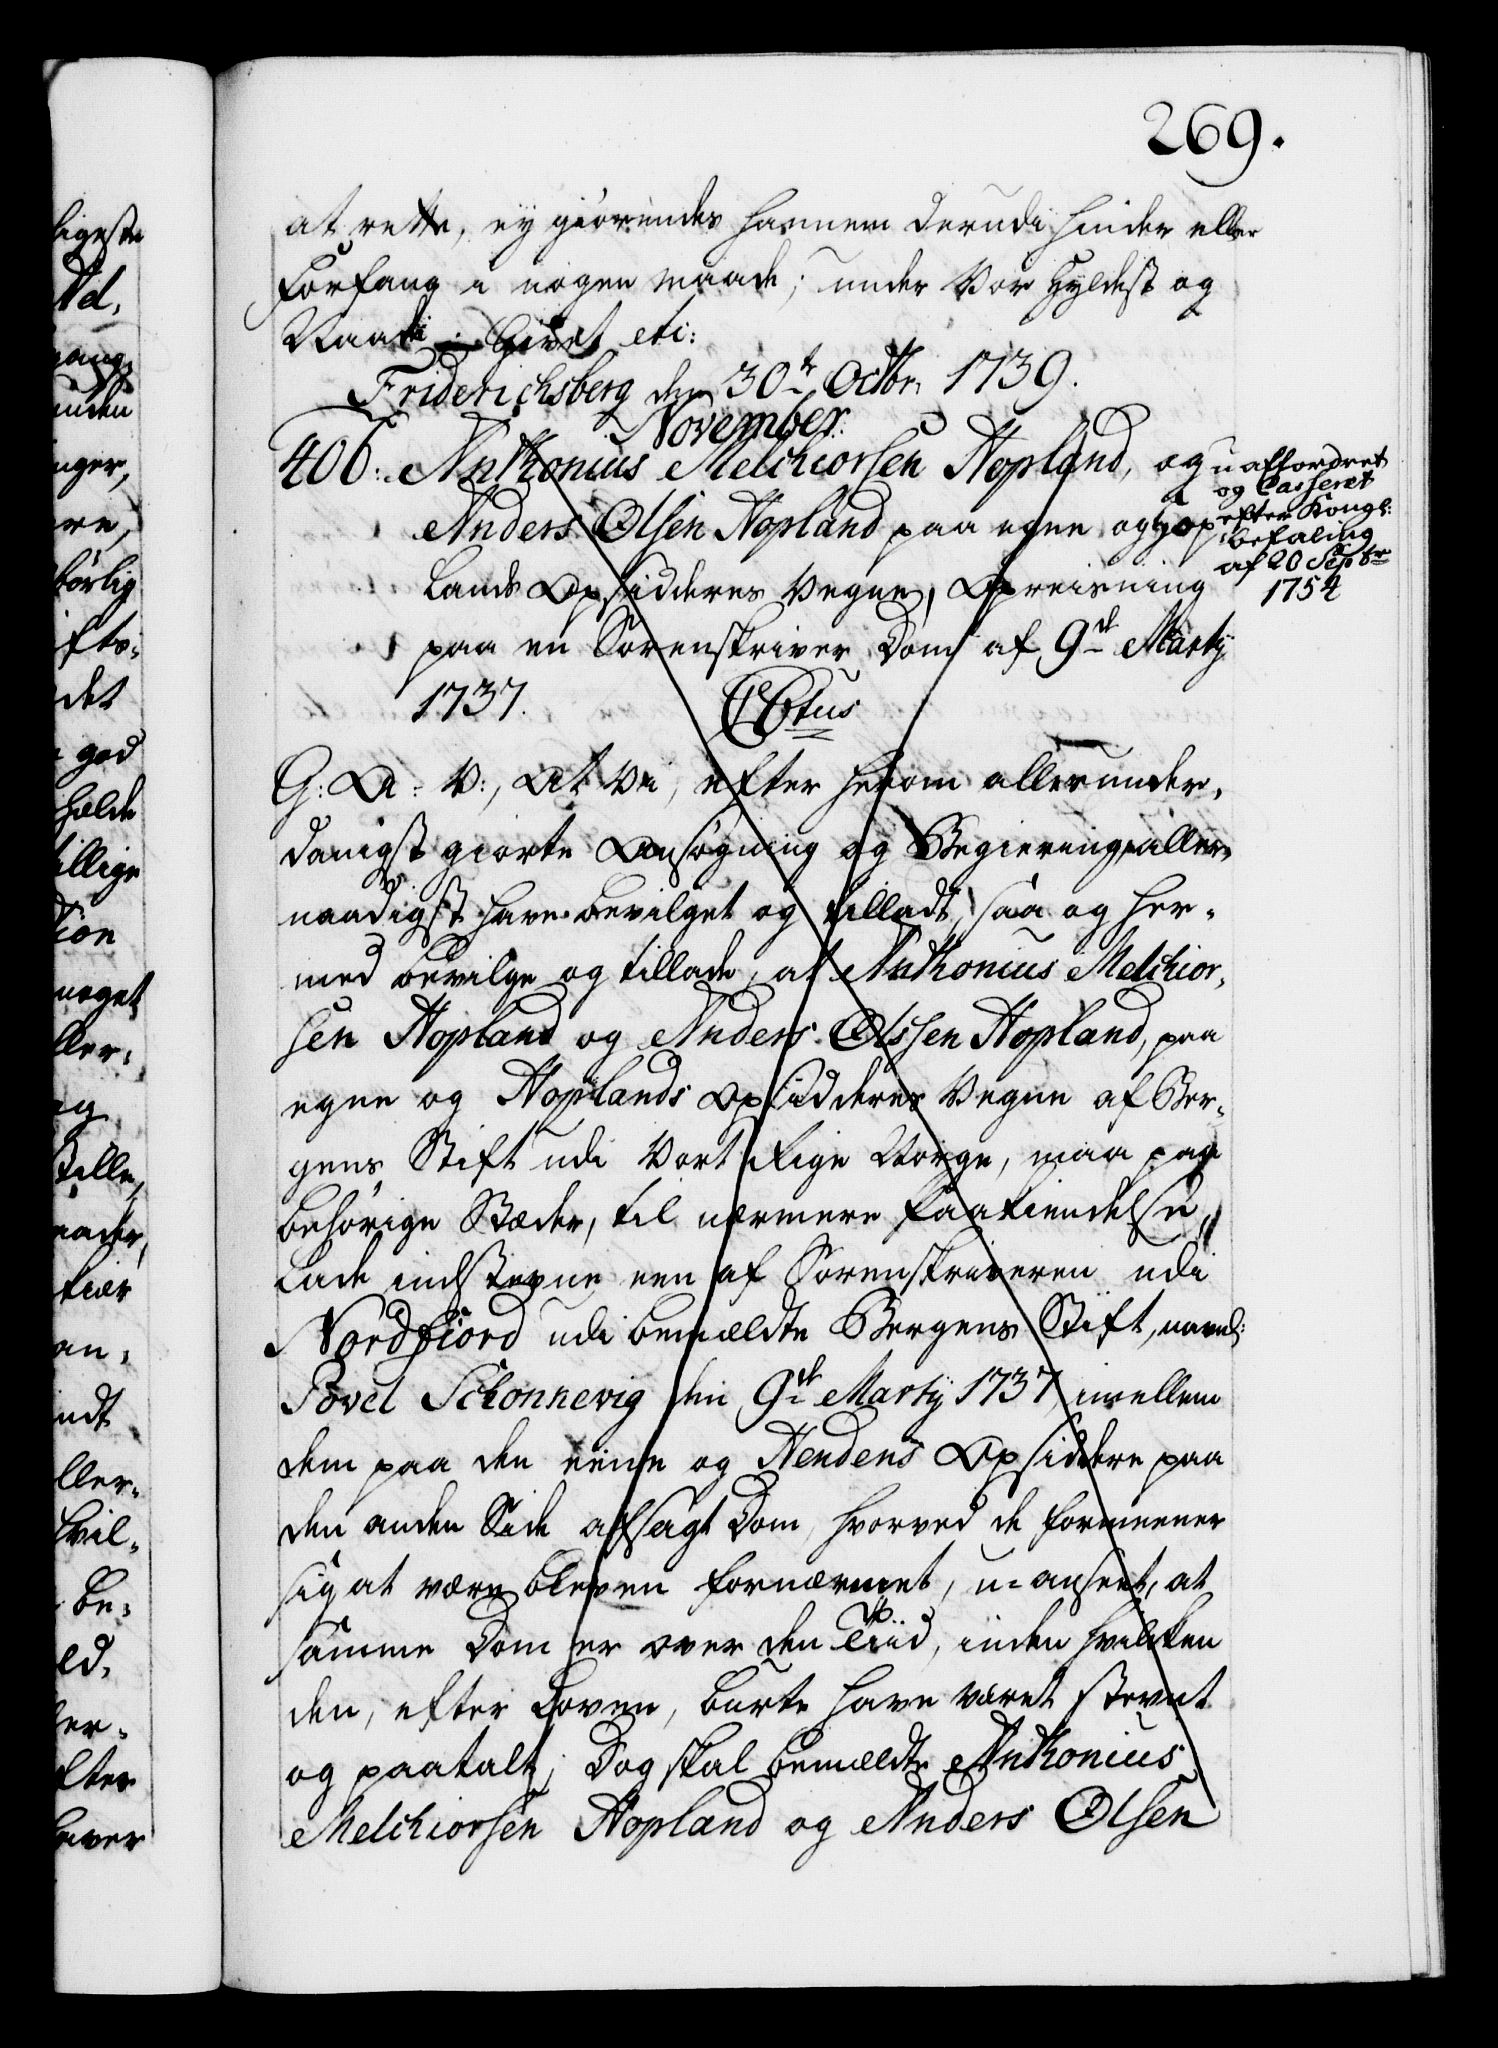 269.
at rette, ey giörendes hannem derudi hinder eller
Forfang i nogen maade; under Vor Hyldest og
Naade. Givet etc:
Friderichsberg den 30t Octbr. 1739.
November.
406. Anthonius Melchiorsen Hopland, og
Anders Olsen Hopland paa egne og Hop
lands Opsidderes Vegne, Opreisning
paa en Sorenskriver Dom af 9de Martij
1737. C6tus
uaffordret
og Casseret
efter Kongl:
befaling
af 20 Sepbr
1754
G: A: V:, At Vi, efter herom allerunder,
danigst giorte Ansøgning og Begiering, aller,
naadigst have bevilget og tilladt, saa og her,
med bevilge og tillade, at Anthonius Melchior,
sen Hopland og Anders Olssen Hopland, paa
egne og Hoplands Opsidderes Vegne af Ber,
gens Stift udi Vort Rige Norge, maa paa
behørige Stæder, til nærmere Paakiendelse,
lade indstevne een af Sorenskriveren udi
Nordfiord udi bemældte Bergens Stift, navnl:
Povel Schonnevig den 9de Martij 1737, imellem
dem paa den eene og Hendens Opsiddere paa
den anden Side afsagt Dom, hvorved de formeener
sig at være bleven fornærmet, u-anseet, at
samme Dom er over den Tiid, inden hvilken
den, efter Loven, burte have været stevnt
og paatalt; Dog skal bemældte Anthonius
Melchiorsen Hopland og Anders Olsen